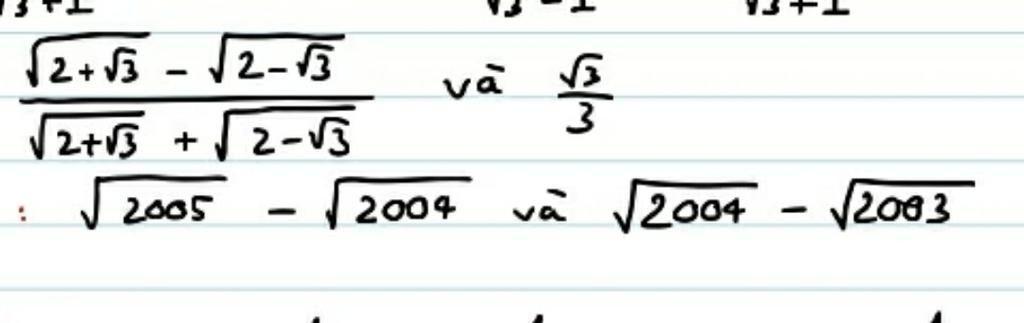 (√(2+√3) - √(2-√3)) / (√(2+√3) + √(2-√3)) và √3/3
: √2005 - √2004 và √2004 - √2003